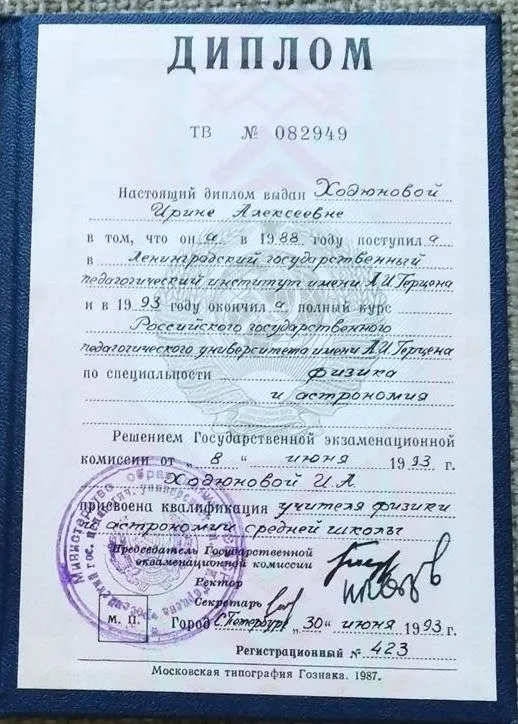 ДИПЛОМ
ТВ № 082949
Настоящий диплом выдан Ходюновой
Ирине Алексеевне
в том, что он а в 1988 году поступил а
в Ленинградский государственный
педагогический институт имени А.И.Герцена
и в 1993 году окончил а полный курс
Российского государственного
педагогического университета имени А.И.Герцена
по специальности физика
и астрономия
Решением Государственной экзаменационной
комиссии от „ 8 “ июня 1993 г.
Ходюновой И.А.
присвоена квалификация учителя физики
и астрономии средней школы
Председатель Государственной
экзаменационной комиссии
Ректор
Секретарь
М. П.
Город С.Петербург „30“ июня 1993 г.
Регистрационный № 423
Московская типография Гознака. 1987.
Министерство